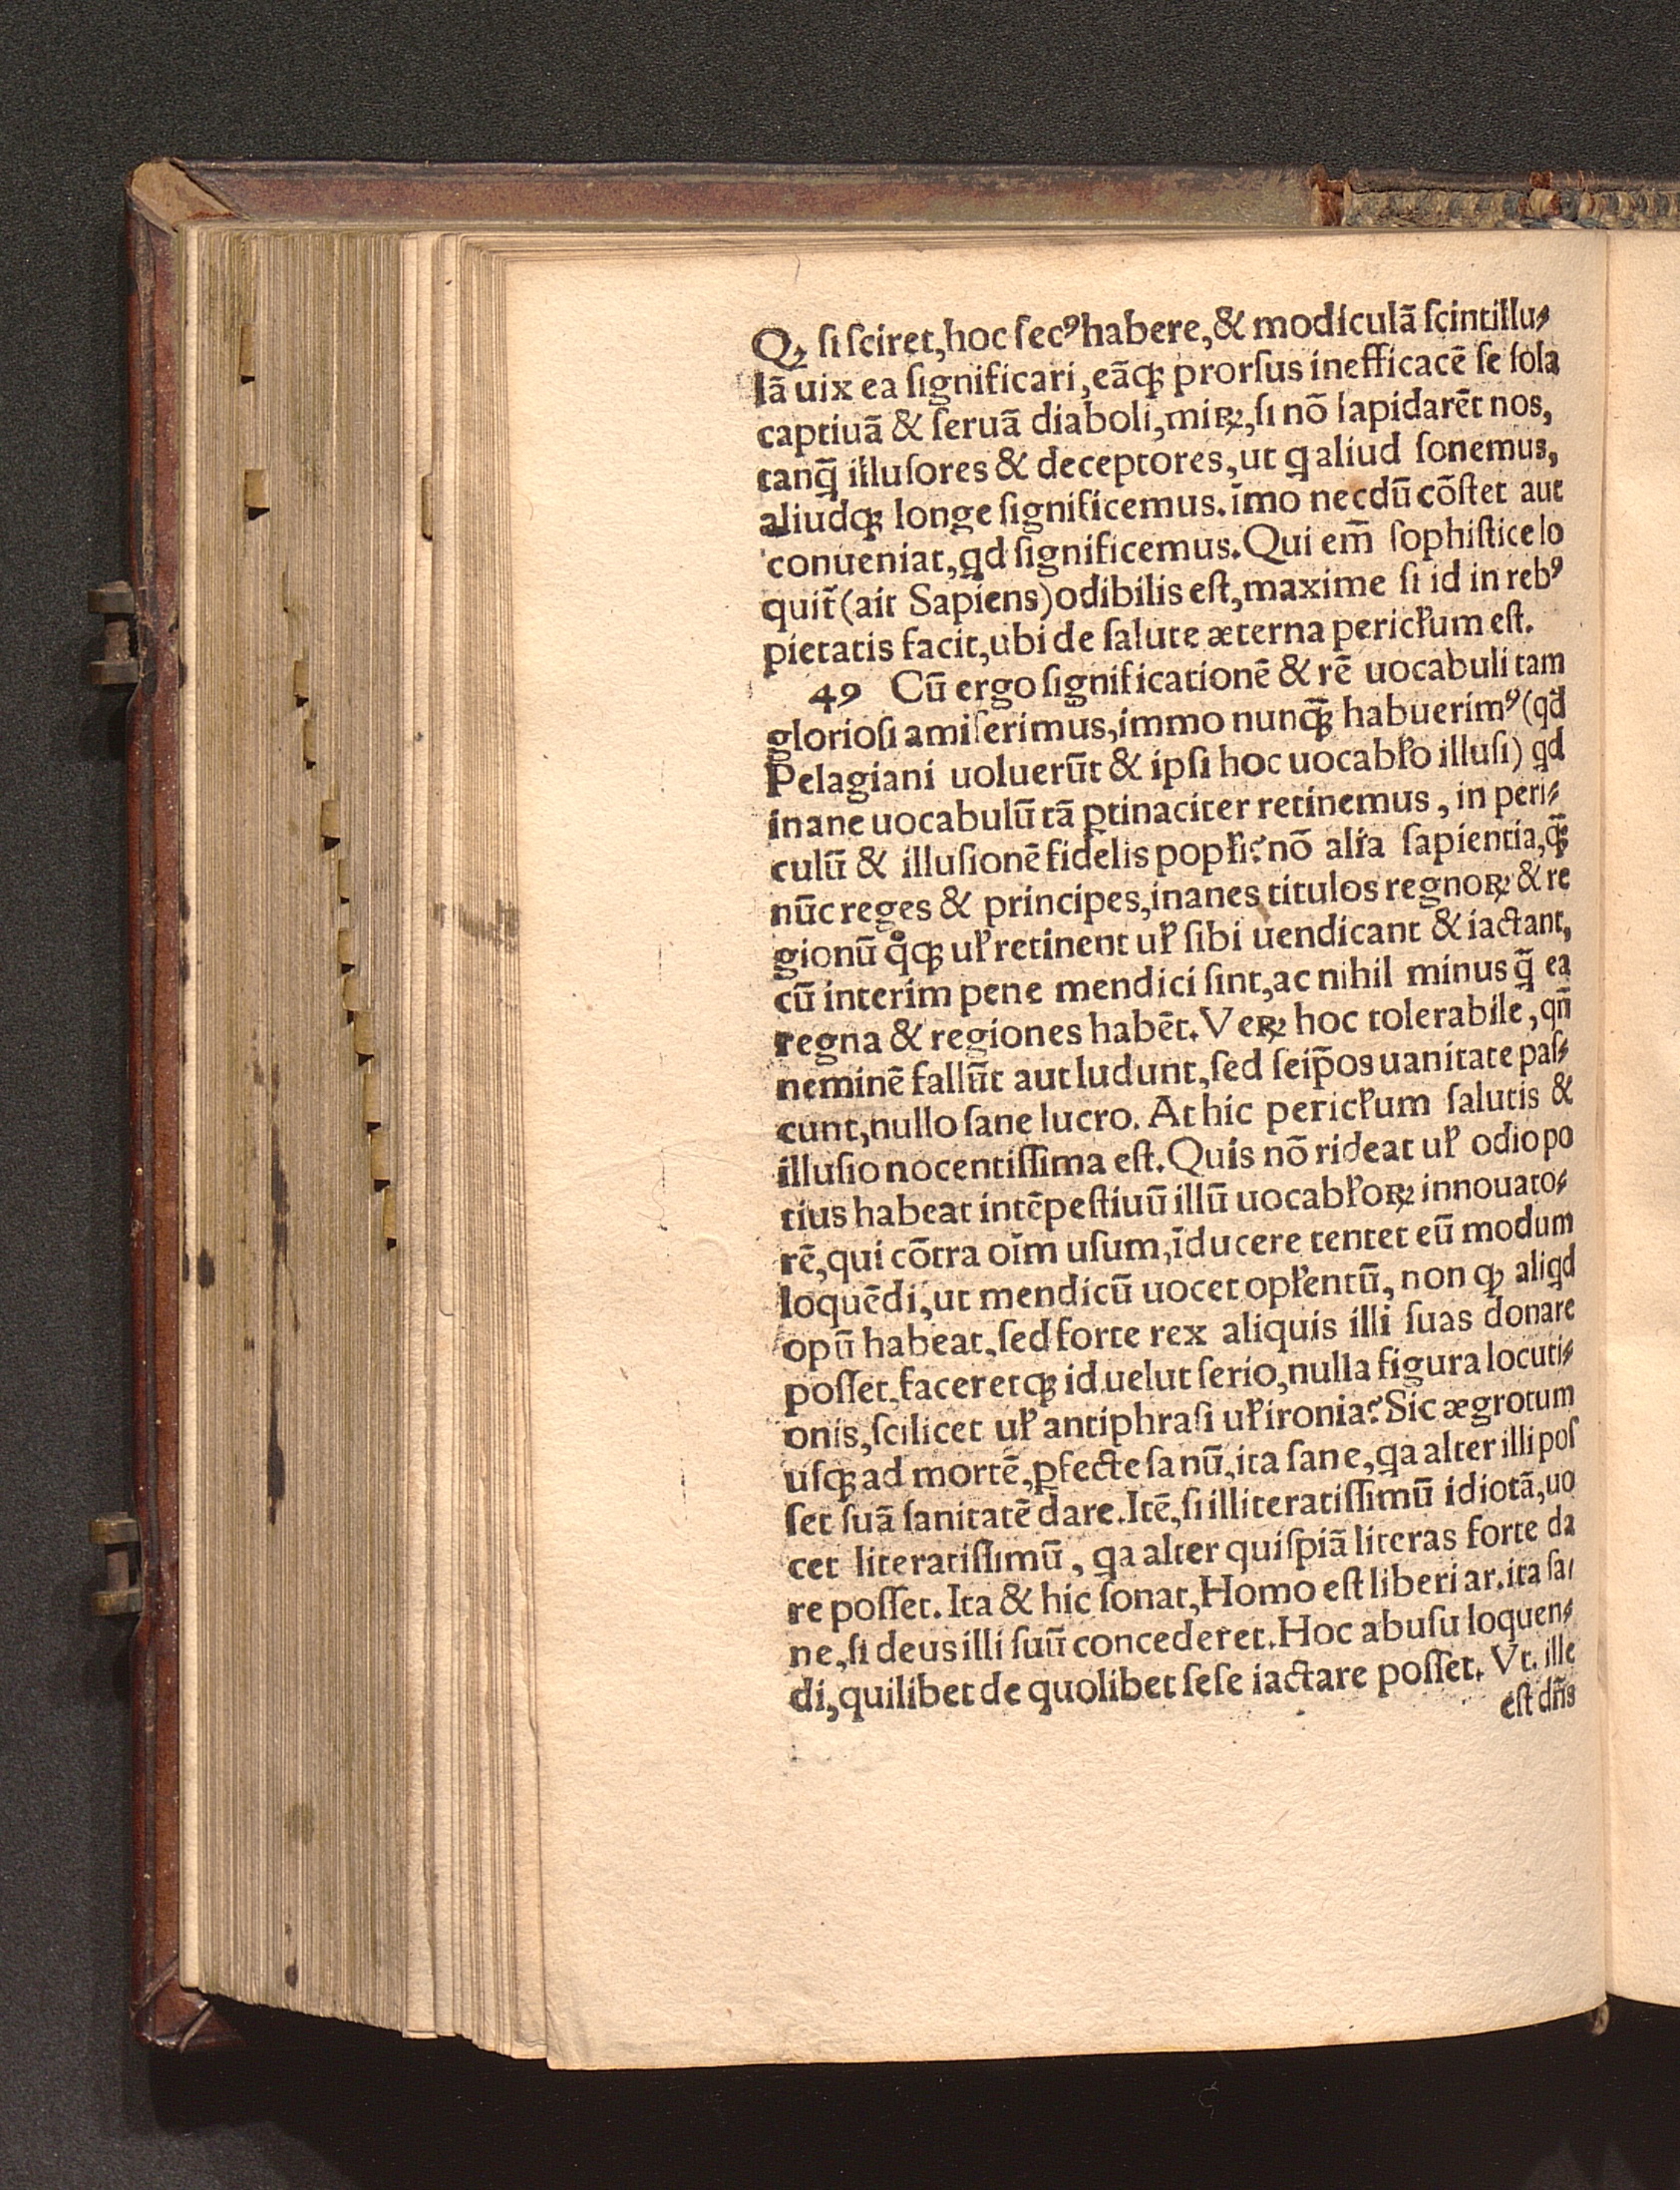 Qꝫ ſi ſciret, hoc ſecꝰ habere, & modiculã ſcintillu⸗
lã uix ea ſignificari, eãqꝫ prorſus inefficacẽ ſe ſola
captiuã & ſeruã diaboli, miꝝ, ſi nõ lapidarẽt nos,
tanq̃ illuſores & deceptores, ut ꝗ aliud ſonemus,
aliudqꝫ longe ſignificemus. ĩmo necdũ cõſtet aut
conueniat, qd ſignificemus. Qui em̃ ſophiſtice lo
quit̃ (ait Sapiens) odibilis eſt, maxime ſi id in rebꝰ
pietatis facit, ubi de ſalute æterna pericƚum eſt.
49 Cũ ergo ſignificationẽ & rẽ uocabuli tam
glorioſi amiſerimus, immo nunq̃ꝫ habuerimꝰ (qd̃
Pelagiani uoluerũt & ipſi hoc uocabƚo illuſi) qd
inane uocabulũ tã ꝑtinaciter retinemus, in peri⸗
culũ & illuſionẽ fidelis popƚi? nõ alĩa ſapientia, q̃ꝫ
nũc reges & principes, inanes titulos regnoꝝ & re
gionũ qͦqꝫ uƚ retinent uƚ ſibi uendicant & iactant,
cũ interim pene mendici ſint, ac nihil minus q̃ ea
regna & regiones habẽt. Veꝝ hoc tolerabile, qñ
neminẽ fallũt aut ludunt, ſed ſeip̃os uanitate paſ⸗
cunt, nullo ſane lucro. At hic pericƚum ſalutis &
illuſio nocentiſſima eſt. Quis nõ rideat uƚ odio po
tius habeat intẽpeſtiuũ illũ uocabƚoꝝ innouato⸗
rẽ, qui cõtra oĩm uſum, ĩducere tentet eũ modum
loquẽdi, ut mendicũ uocet opƚentũ, non ꝙ aliꝗd
opũ habeat, ſed forte rex aliquis illi ſuas donare
poſſet, faceretqꝫ id uelut ſerio, nulla figura locuti⸗
onis, ſcilicet uƚ antiphraſi uƚ ironia? Sic ægrotum
uſqꝫ ad mortẽ, ꝑfecte ſanũ, ita ſane, ꝗa alter illi poſ
ſet ſuã ſanitatẽ dare. Itẽ, ſi illiteratiſſimũ idiotã, uo
cet literatiſſimũ, ꝗa alter quiſpiã literas forte da
re poſſet. Ita & hic ſonat, Homo eſt liberi ar. ita ſa⸗
ne, ſi deus illi ſuũ concederet. Hoc abuſu loquen⸗
di, quilibet de quolibet ſeſe iactare poſſet. Vt. ille
eſt dñs